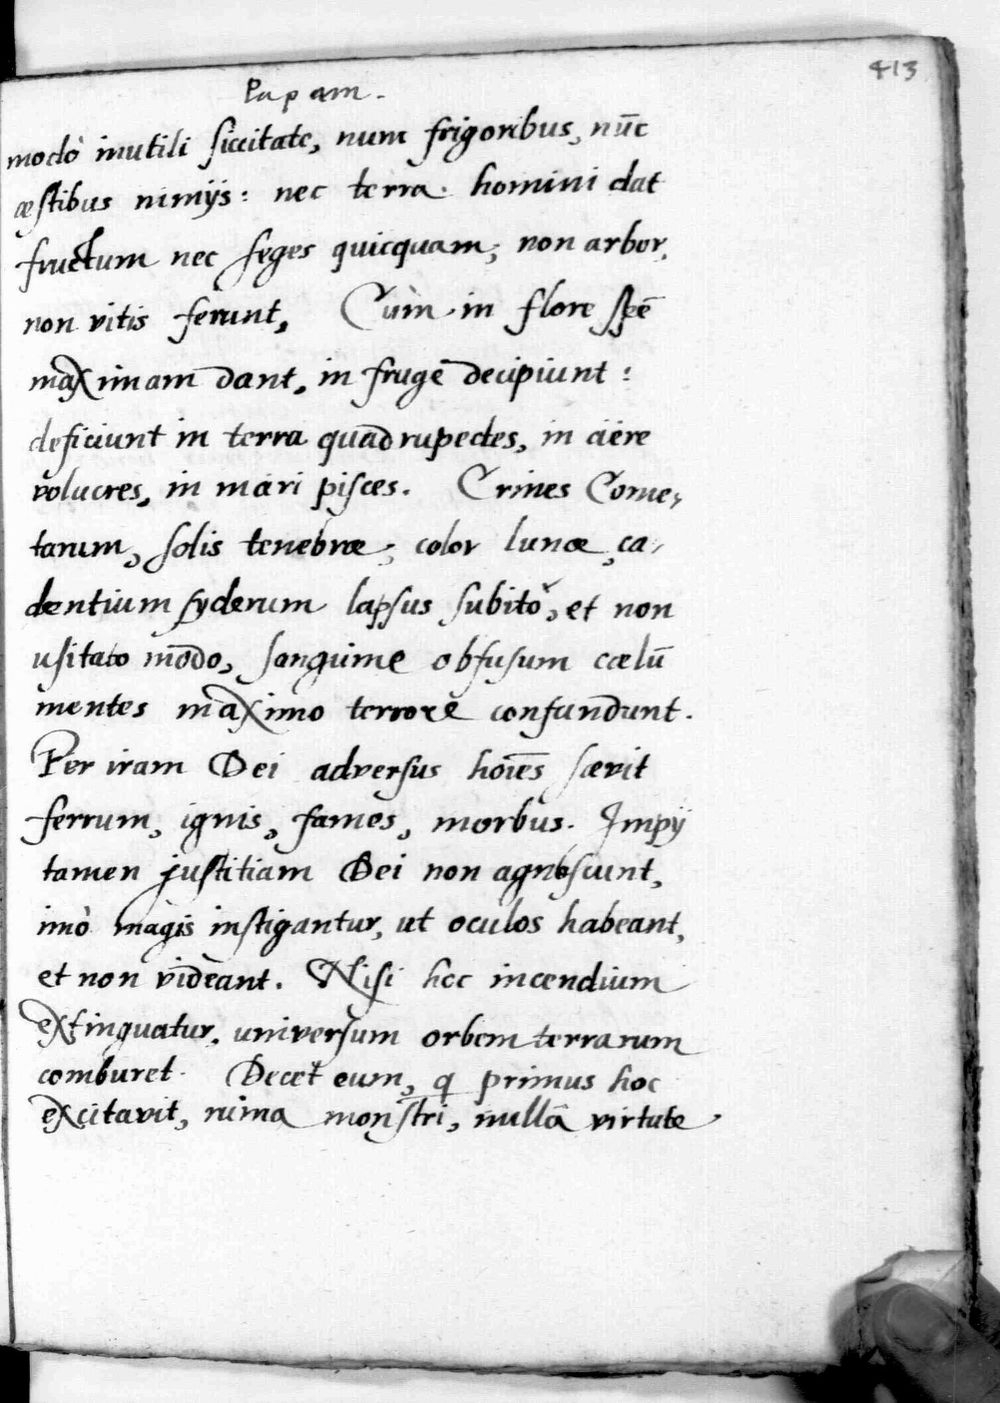 413
Papam.
modò inutili siccitate, nunc frigoribus, nūc
æstibus nimijs: nec terra homini dat
fructum nec seges quicquam; non arbor,
non vitis ferunt, Cùm in flore spē
maximam dant, in frugē decipiunt:
deficiunt in terra quadrupedes, in aëre
volucres, in mari pisces. Crines Come,
tarum, solis tenebræ; color lunæ, ca,
dentium syderum lapsus subitò, et non
usitato modo, sanguine obfusum cœlū
mentes maximo terrore confundunt.
Per iram Dei adversus hoīes sævit
ferrum, ignis, fames, morbus. Impij
tamen justitiam Dei non agnoscunt,
imò magis instigantur, ut oculos habeant,
et non videant. Nisi hoc incendium
extinguatur, universum orbem terrarum
comburet. Decet eum, q primus hoc
excitavit, nima monstri, nullâ virtute